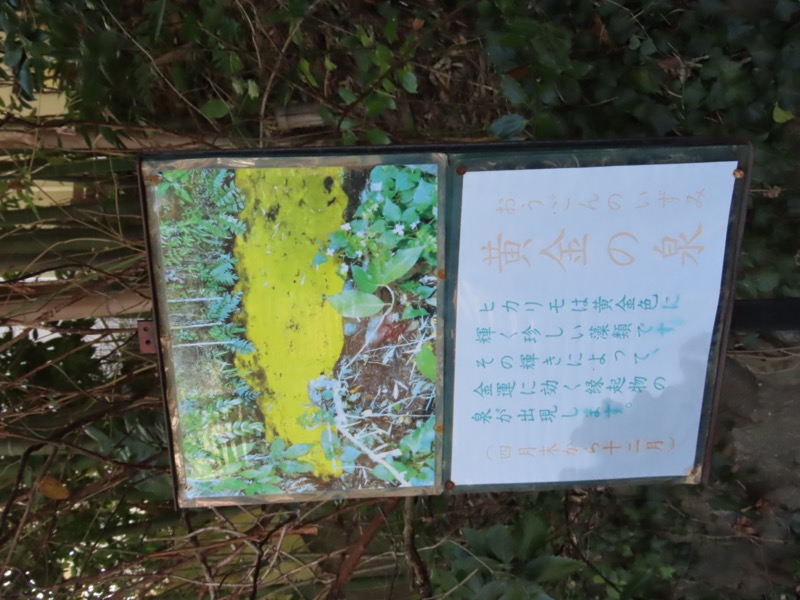 おうごんのいずみ
黄金の泉
ヒカリモは黄金色に
輝く珍しい藻類です。
その輝きによって、
金運に効く縁起物の
泉が出現します。
（四月末から十二月）